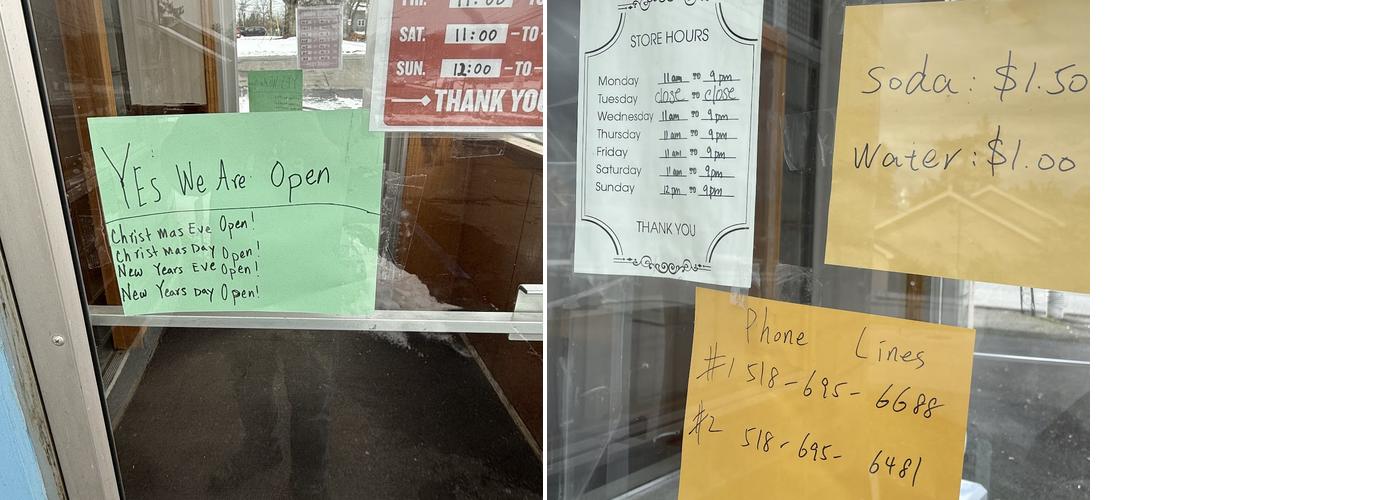 FRI. 11:00 -TO-
SAT. 11:00 -TO-
SUN. 12:00 -TO-
THANK YOU
YES We Are Open
Christmas Eve Open!
Christmas Day Open!
New Years Eve Open!
New Years Day Open!
STORE HOURS
Monday 11am TO 9pm
Tuesday close TO close
Wednesday 11am TO 9pm
Thursday 11am TO 9pm
Friday 11am TO 9pm
Saturday 11am TO 9pm
Sunday 12pm TO 9pm
THANK YOU
Soda: $1.50
Water: $1.00
Phone Lines
#1 518-695-6688
#2 518-695-6481